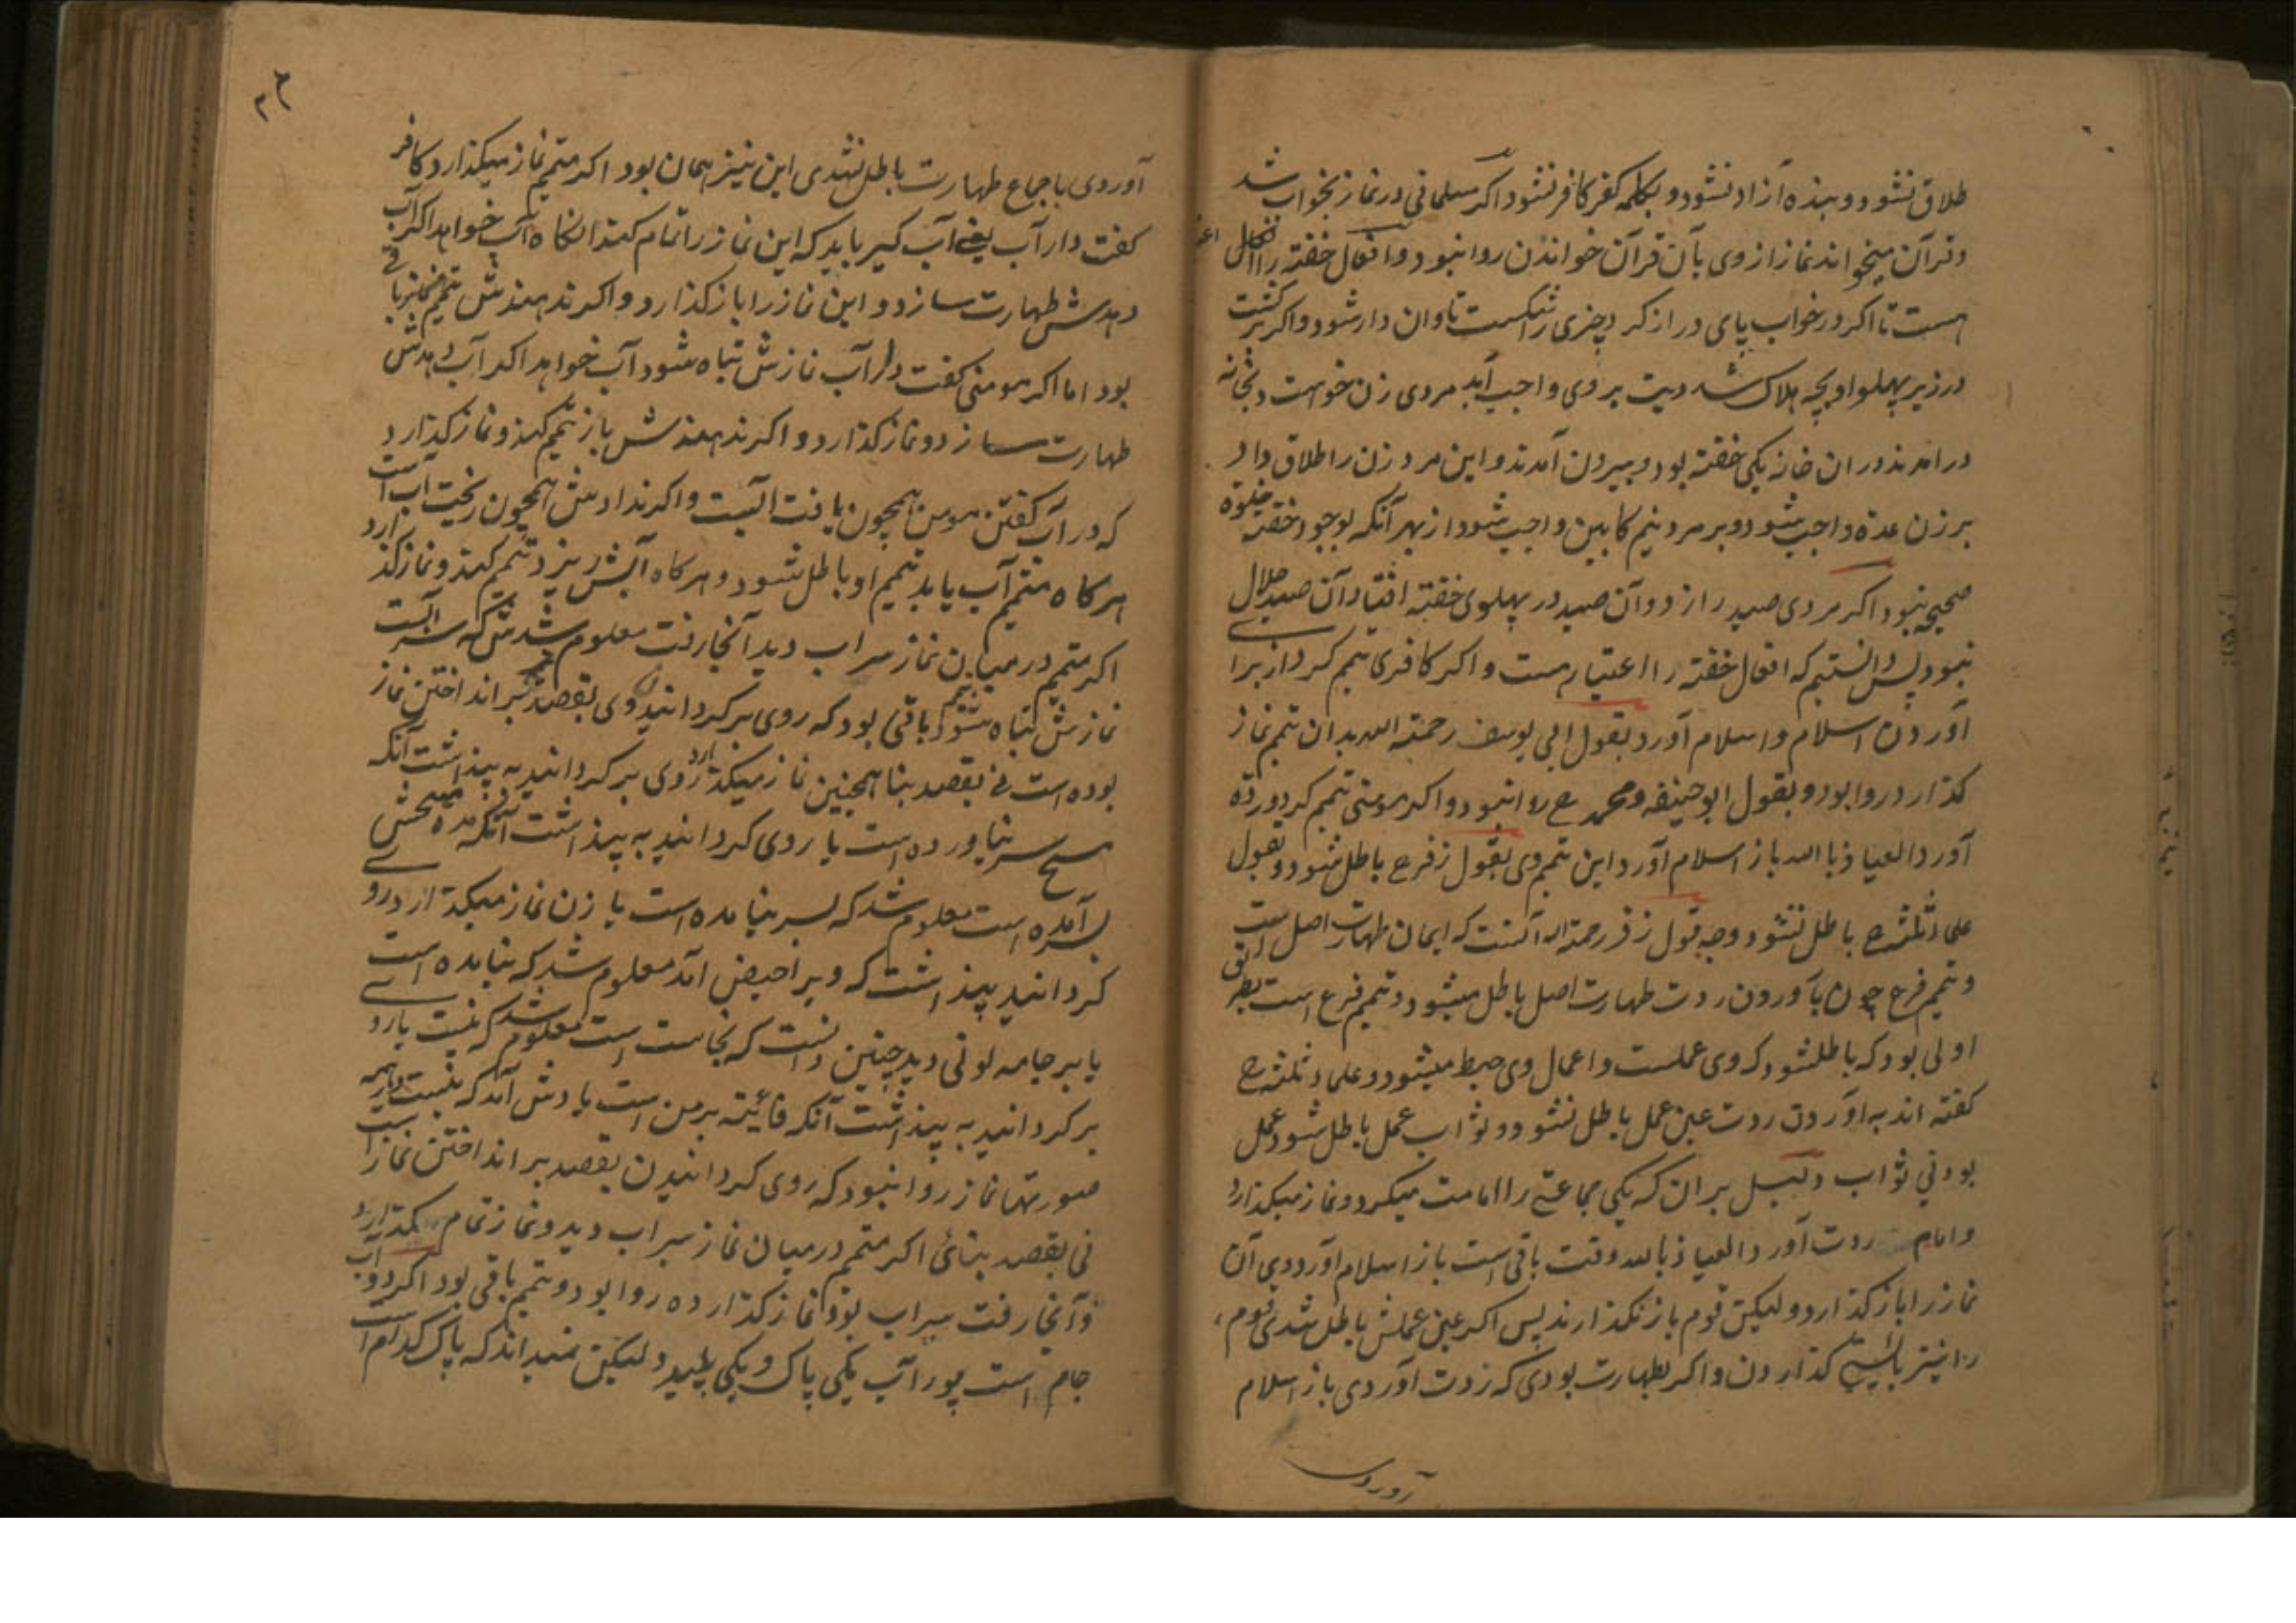 طلاق نشود و بنده آزاد نشود و بکلمه کفر کافر نشود اکر مسلمانی در نماز بخواب شد
و قرآن میخواند نماز از وی بآن قرآن خواندن روا نبود و افعال خفته را
هست تا اکر در خواب پای دراز کرد چیزی را شکست تاوان دار شود و اکر برکشت
در زیر پهلو او بچه هلاک شد دیت بر وی واجب آید مردی زن خواست و بخانه
درامدند در ان خانه یکی خفته بود و بیرون آمدند و این مرد زن را طلاق داد
بر زن عده واجب شود و بر مرد نیم کابین واجب شود از بهر آنکه بوجود خفته خلوة
صحیح نبود اکر مردی صید را زد و آن صید در پهلوی خفته افتاد آن صید حلال
نبود پس دانستیم که افعال خفته را اعتبار هست و اکر کافری تیمم کرد از برا
آوردن اسلام و اسلام آورد بقول ابی یوسف رحمة الله بدان تیمم نماز
کذارد روا بود و بقول ابو حنیفه و محمد رح روا نبود و اکر مومنی تیمم کرد و ردة
آورد العیاذ بالله باز اسلام آورد این تیمم وی بقول زفر رح باطل شود و بقول
علماء ثلثه رح باطل نشود وجه قول زفر رحمة الله آنست که ایمان طهارت اصل است
و تیمم فرع چون بآوردن ردت طهارت اصل باطل میشود و تیمم فرع است بطریق
اولی بود که باطل شود که وی عملست و اعمال وی حبط میشود و علماء ثلثه رح
کفته اند به آوردن ردت عین عمل باطل نشود و ثواب عمل باطل شود و عمل
بود بی ثواب دلیل بر ان که یکی جماعتی را امامت میکرد و نماز میکذارد
و امام ردت آورد العیاذ بالله وقت باقی است باز اسلام آورد وی آن
نماز را باز کذارد و لیکن قوم باز نکذارند پس اکر عین عملش باطل شدی قوم
را نیز بایستی کذاردن و اکر بطهارت بودی که ردت آوردی باز اسلام
آوردی
آوردی باجماع طهارت باطل نشدی این نیز همان بود اکر متیمم نماز میکذارد کافر
کفت دار آب یعنی آب کیر باید که این نماز را تمام کند انکاه آب خواهد اکر آب
دهدش طهارت سازد و این نماز را باز کذارد و اکر ندهندش تیمم باقی
بود اما اکر مومنی کفت دار آب نمازش تباه شود آب خواهد اکر آب دهدش
طهارت سازد و نماز کذارد و اکر ندهندش باز تیمم کند و نماز کذارد
که در آب کفتن مومن همچون یافت آبست و اکر ندادش همچون ریخت آب است
هر کاه متیمم آب یابد تیمم او باطل شود و هر کاه آبش ریزد تیمم کند و نماز کذارد
اکر متیمم در میان نماز سراب دید آنجا رفت معلوم شدش که سرابست
نمازش تباه شود باقی بود که روی بر کردانید وی بقصد بر انداختن نماز
بوده است نی بقصد بنا همچنین نماز میکذارد روی بر کردانید به پنداشت آنکه
مسح سر نیاورده است یا روی کردانید به پنداشت آنکه مدة مسحش
بسر آمده است معلوم شد که بسر نیامده است یا زن نماز میکذارد روی
کردانید پنداشت که ویرا حیض آمد معلوم شد که نیامده است
یا بر جامه لونی دید چنین دانست که نجاست است معلوم شد که نیست یا روی
بر کردانید به پنداشت آنکه فائته بر من است یادش آمد که نیست در همه
صورتها نماز روا نبود که روی کردانیدن بقصد بر انداختن نماز است
نی بقصد بنائی اکر متیمم در میان نماز سراب دید و نماز تمام بکذارد
و آنجا رفت سراب بود نماز کذارده روا بود و تیمم باقی بود اکر دو
جام است پر آب یکی پاک و یکی پلید و لیکن نمیداند که پاک کدام است